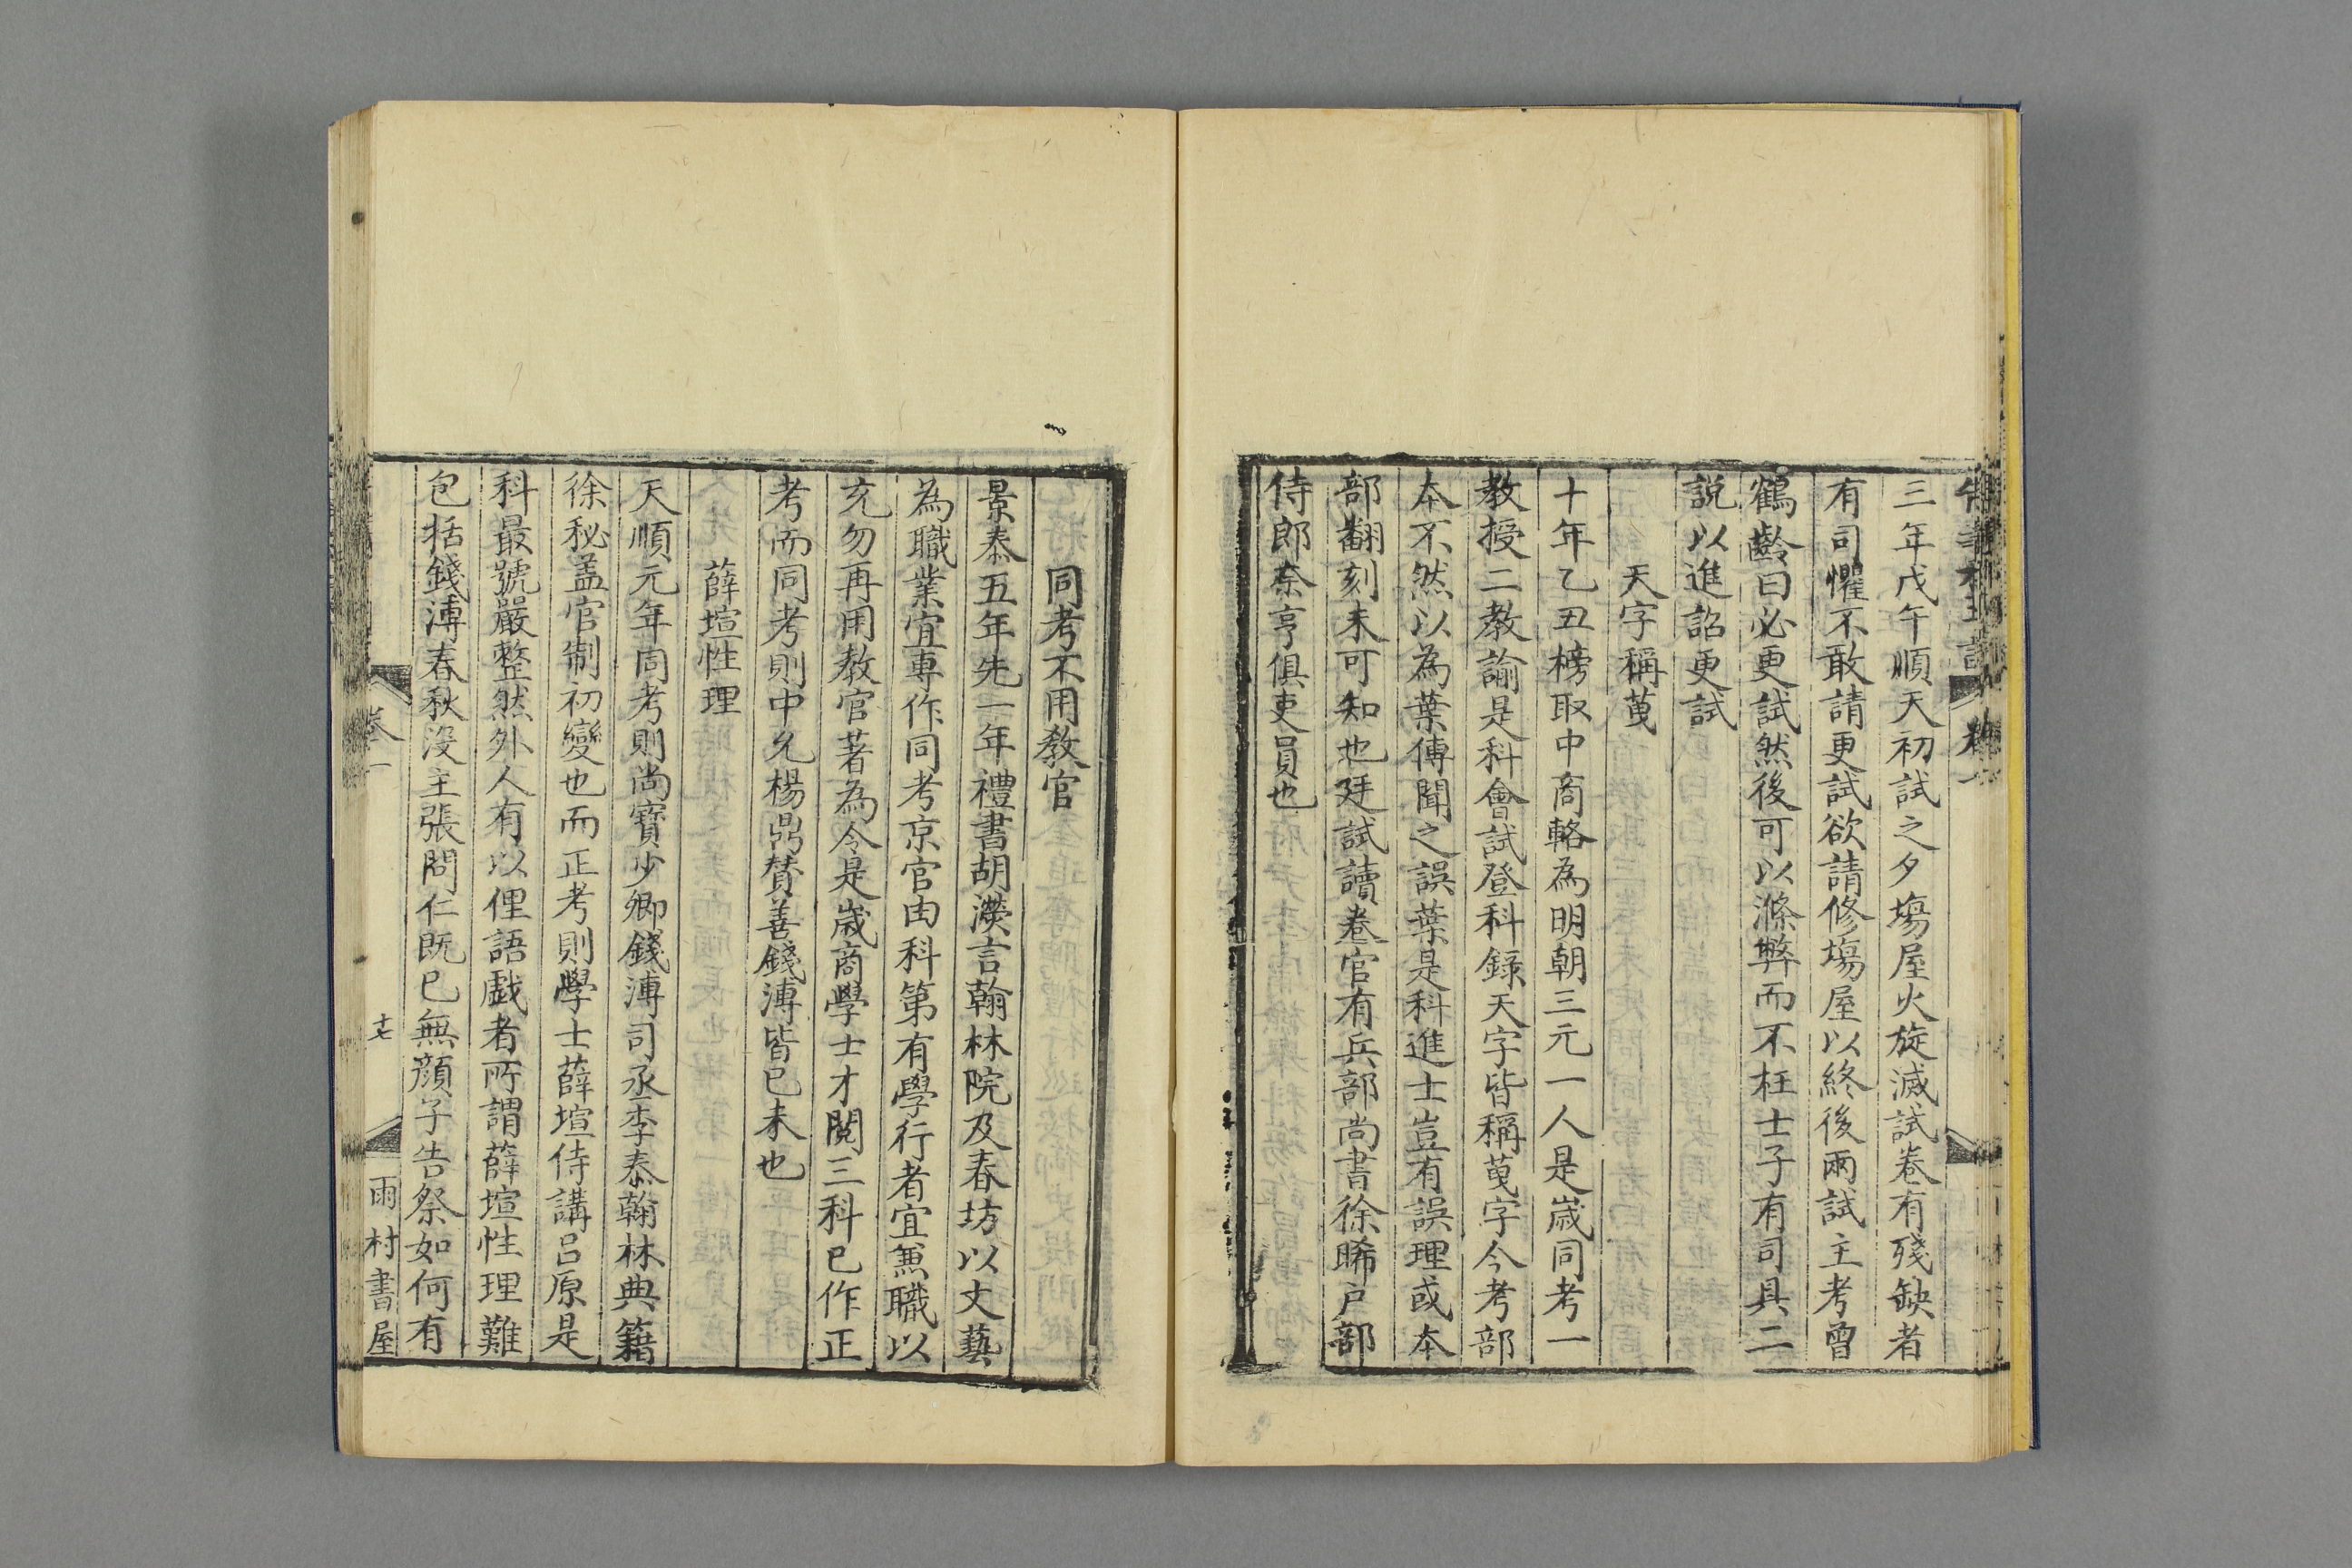 三年戊午順天初試之夕塲屋火旋滅試卷有殘缺者
有司懼不敢請更試欲請修塲屋以終後兩試主考曾
鶴齡曰必更試然後可以滌弊而不枉士子有司具二
説以進詔更試
天字稱䒳
十年乙丑榜取中商輅為明朝三元一人是嵗同考一
教授二教諭是科會試登科録天字皆稱䒳字今考部
本不然以為葉傳聞之誤葉是科進士豈有誤理或本
部翻刻未可知也廷試讀卷官有兵部尚書徐晞户部
侍郎奈亨俱吏員也
同考不用敎官
景泰五年先一年禮書胡濙言翰林院及春坊以文藝
為職業宜專作同考京官由科第有學行者宜兼職以
充勿再用敎官著為令是嵗商學士才閲三科已作正
考而同考則中允楊鼎賛善錢溥皆已未也
薛瑄性理
天順元年同考則尚寳少卿錢溥司丞李泰翰林典籍
徐秘盖官制初變也而正考則學士薛瑄侍講吕原是
科最號嚴整然外人有以俚語戯者所謂薛瑄性理難
包括錢溥春秋没主張問仁既已無顔子告祭如何有
卷一
十七
雨村書屋